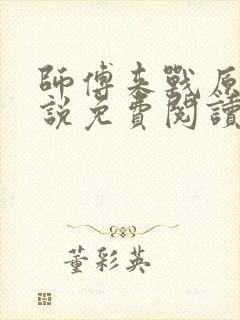 師傅來戰原
說免費閱讀
董彩英